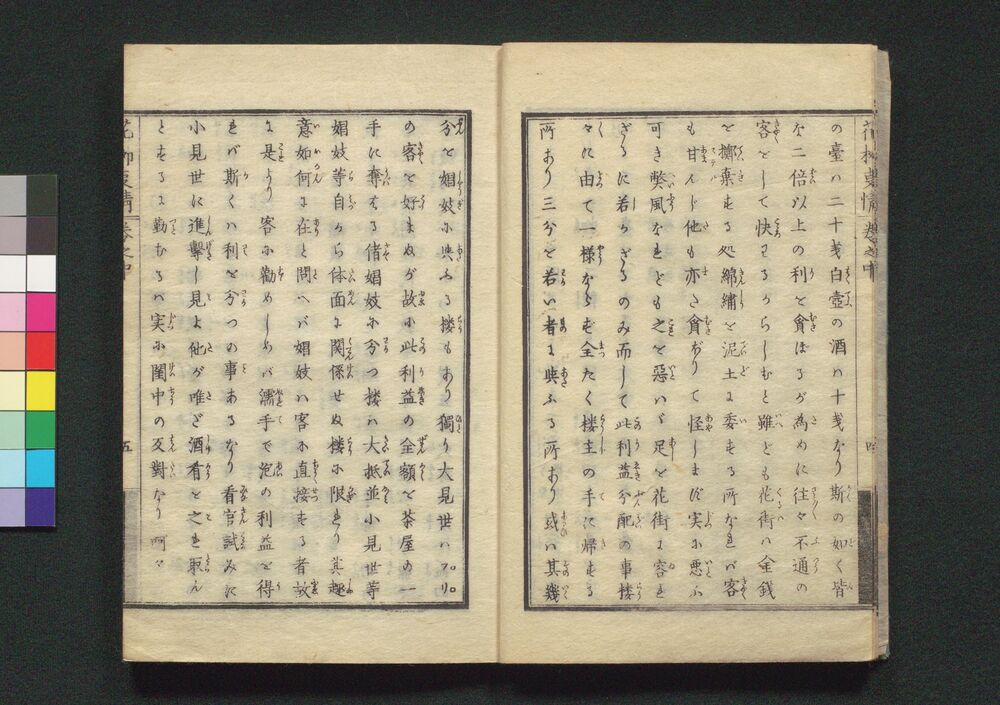 の臺ハ二十戔白壺の酒ハ十戔なり斯の如く皆
な二倍以上の利を貪ほるが為めに往々不通の
客をして快はるからしむと雖ども花街ハ金錢
を擲棄する処綿繍を泥土に委する所なれバ客
も甘んじ他も亦た貪ぼりて怪しまず実に悪ふ
可き弊風なれども之を惡いバ足を花街に容れ
ざるに若かざるのみ而して此利益分配の事楼
々に由て一様ならず全たく楼主の手に帰する
所あり三分を若い者に與ふる所あり或ハ其幾
分を娼妓に與ふる楼もあり獨り大見世ハフリ
の客を好まぬが故に此利益の全額を茶屋の一
手に奪はる偖娼妓に分つ楼ハ大抵並小見世等
娼妓等自から体面に関係せぬ楼に限れり其趣
意如何に在と問へバ娼妓ハ客に直接する者故
に是より客に勸めしめバ濡手で泡の利益を得
れバ斯くハ利を分つの事あるなり看官試みに
小見世に進撃し見よ他が唯だ酒肴を之れ取ん
とするに勤むるハ実に閨中の反對なり呵々
花柳事情 巻之中
五